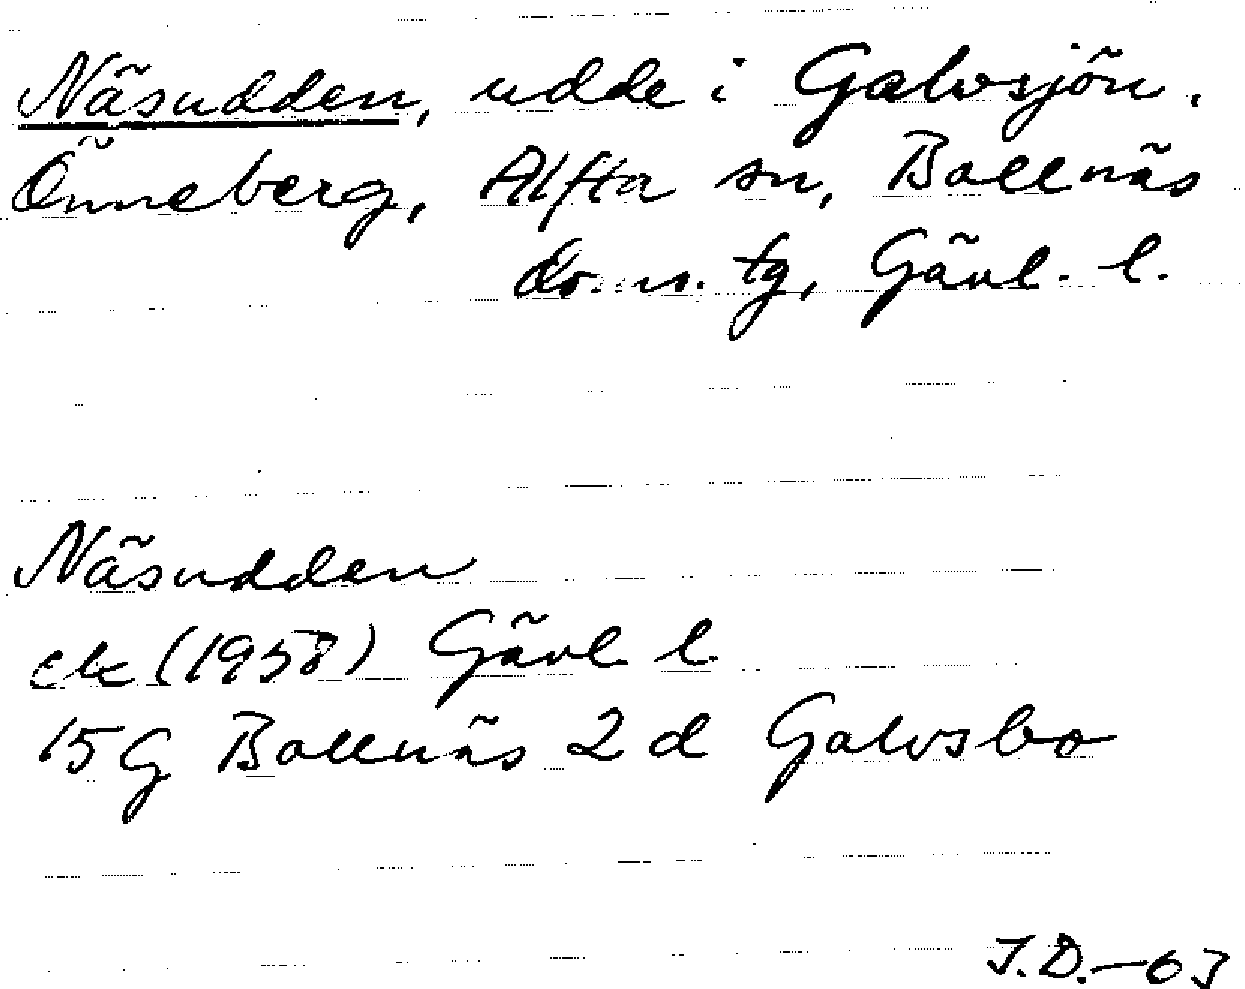 Näsudden, udde i Galvsjön.
Önneberg, Alfta sn, Bollnäs
dom. tg, Gävl. l.
Näsudden
ek (1958) Gävl l.
15G Bollnäs 2d Galvsbo
I.D.-63